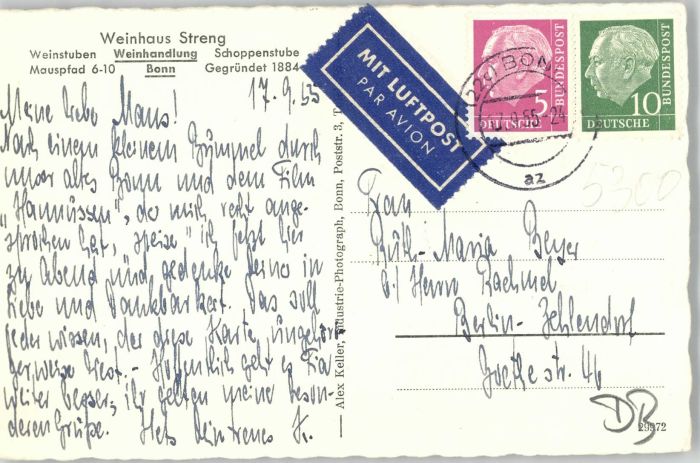 Weinhaus Streng
Weinstuben Weinhandlung Schoppenstube
Mauspfad 6-10 Bonn Gegründet 1884
17.9.55
Meine liebe Maus!
Nach einem kleinen Bummel durch
unser altes Bonn und dem Film
„Hanussen", der mich recht ange-
sprochen hat, „speise" ich jetzt hier
zu Abend und gedenke deiner in
Liebe und Dankbarkeit. Das soll
jeder wissen, der diese Karte ungehöri-
gerweise liest. - Hoffentlich geht es Pia
weiter besser; ihr gelten meine beson-
deren Grüße. Stets dein treues K.
MIT LUFTPOST
PAR AVION
5
DEUTSCHE
BUNDESPOST
10
DEUTSCHE
BUNDESPOST
(22c) BONN
17.9.55-24
az
5300
Alex Keller, Industrie-Photograph, Bonn, Poststr. 3, T
Frau
Ruth-Maria Beyer
b./ Herrn Rachmel
Berlin-Zehlendorf
Goethestr. 46
DB
29972